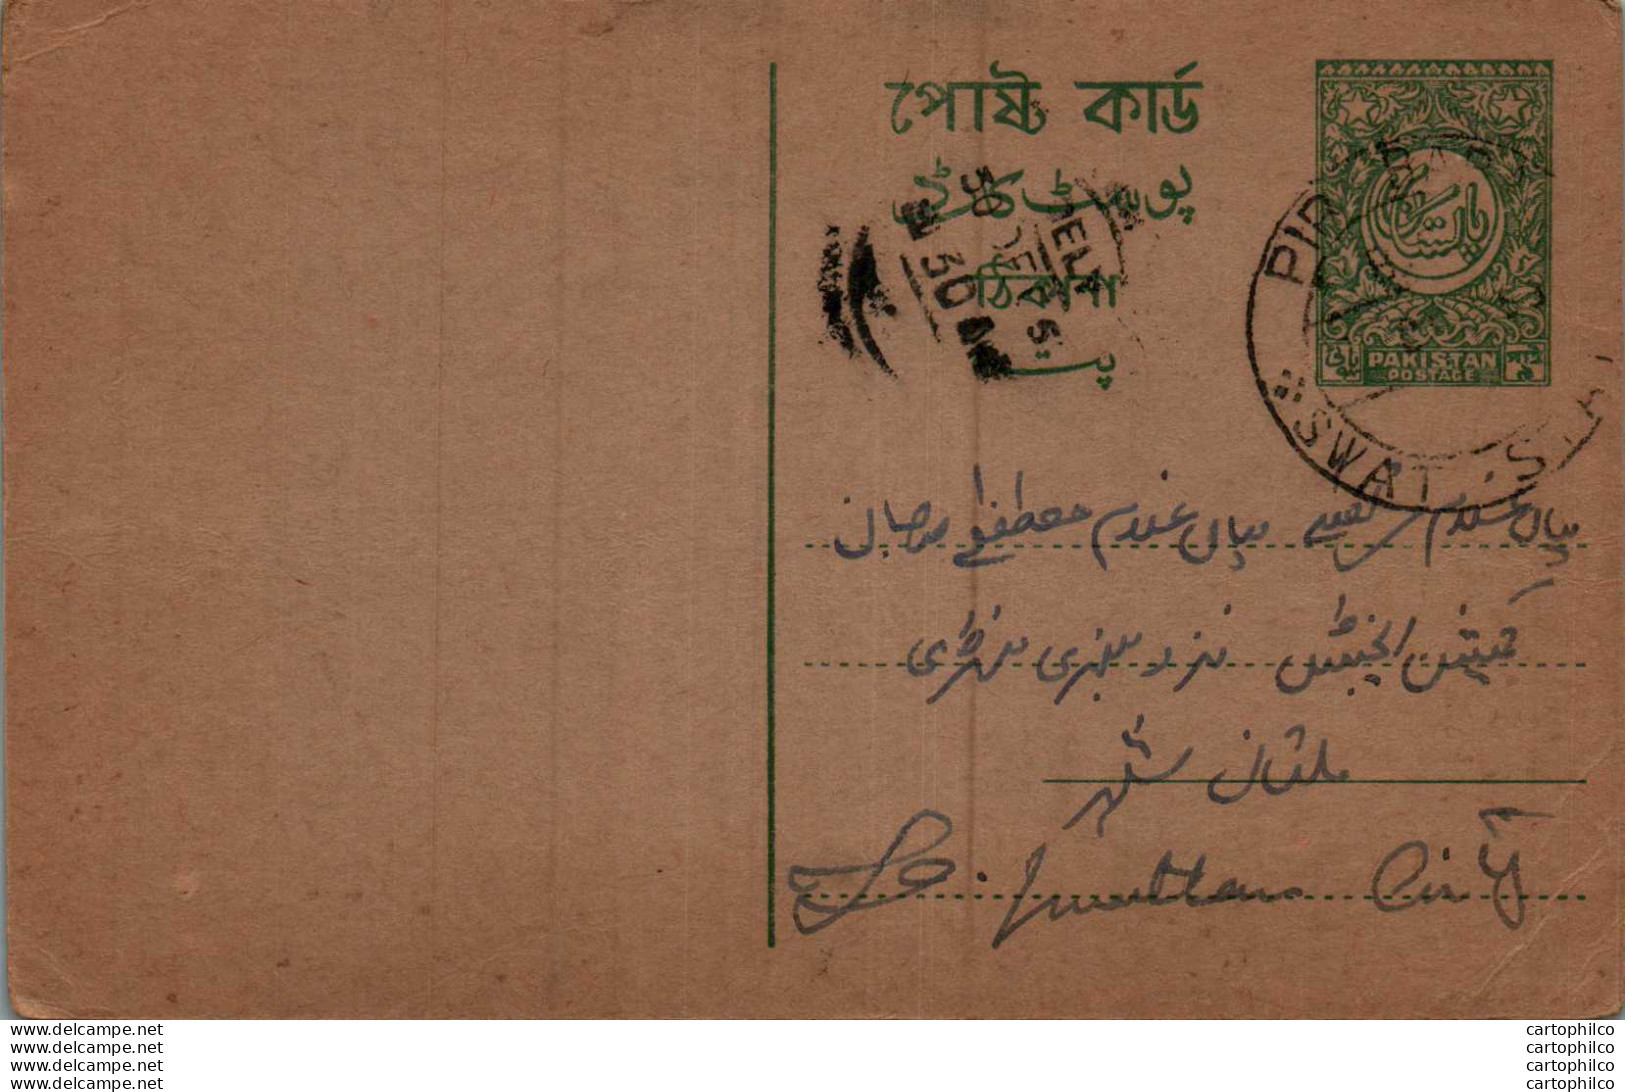 পোষ্ট কার্ড
پوسٹ کارڈ
ঠিকানা
پتہ
پاکستان
PAKISTAN
POSTAGE
PIR BABA
SWAT S
50
30
میاں غلام میاں غلام مصطفےٰ صاحبان
نزد سبزی منڈی
ملتان شہر
Multan City
www.delcampe.net
www.delcampe.net
www.delcampe.net
www.delcampe.net
cartophilco
cartophilco
cartophilco
cartophilco